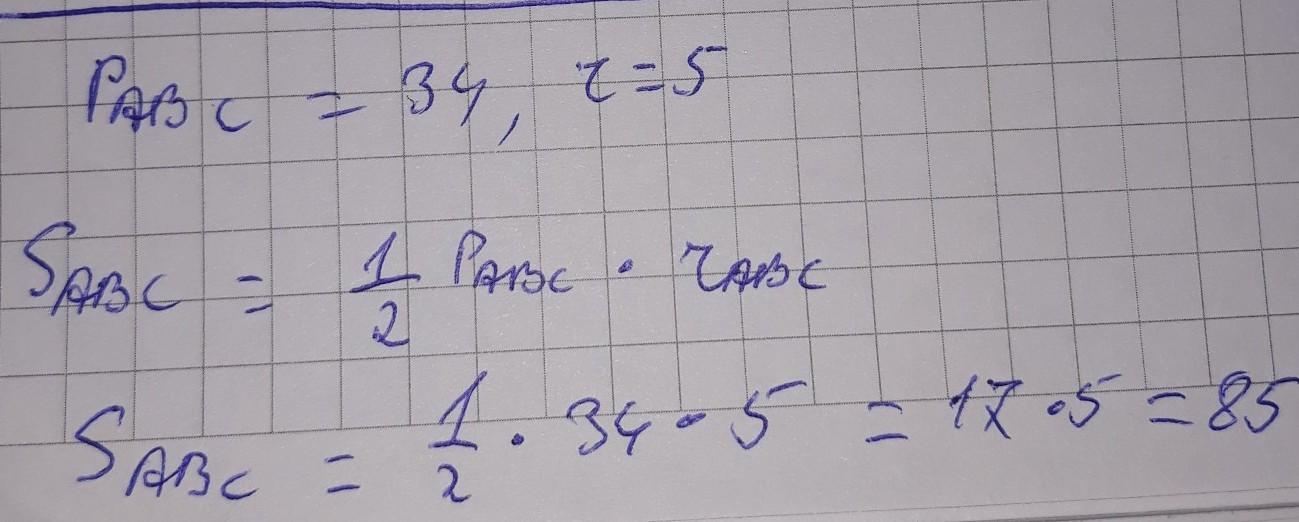 P_ABC = 34, r = 5
S_ABC = 1/2 P_ABC · r_ABC
S_ABC = 1/2 · 34 · 5 = 17 · 5 = 85